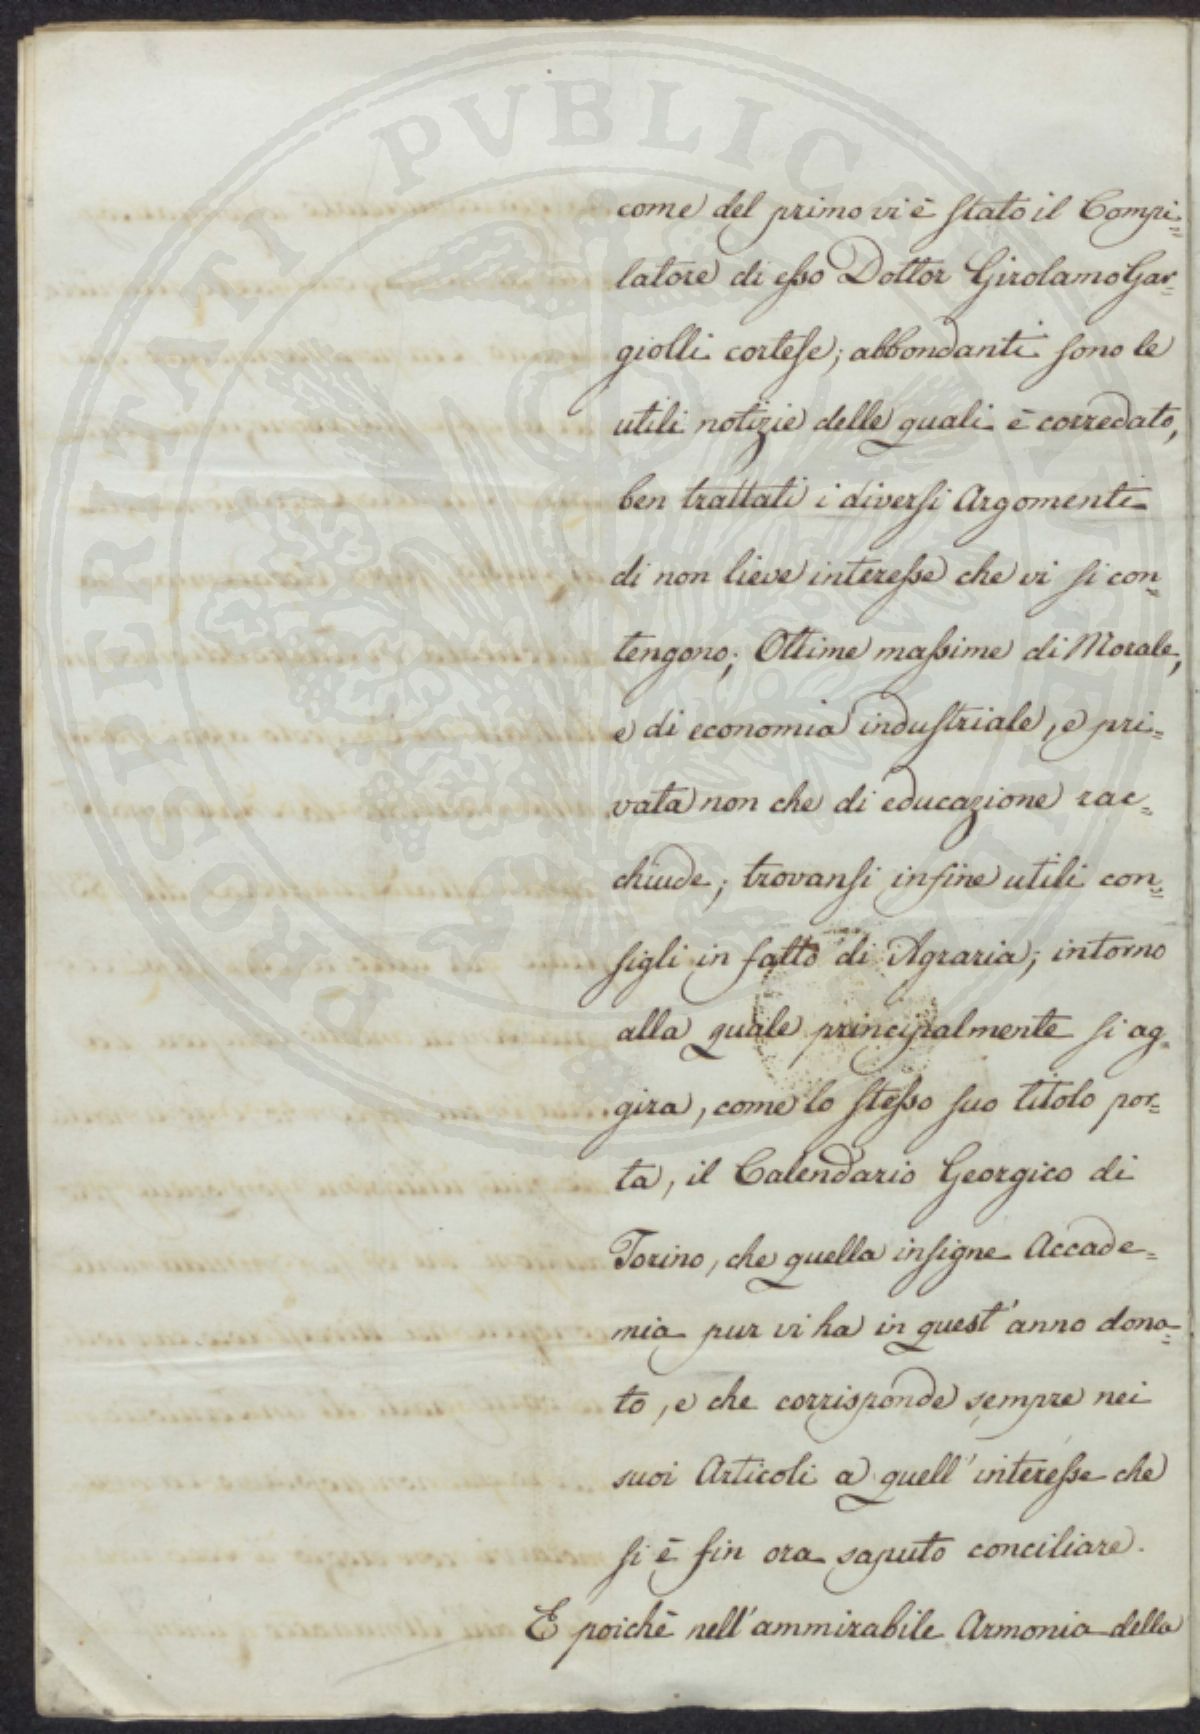 PROSPERITATI PVBLICAE AVGENDAE
come del primo vi è stato il Compi=
latore di esso Dottor Girolamo Gar=
giolli cortese; abbondanti sono le
utili notizie delle quali è corredato,
ben trattati i diversi Argomenti
di non lieve interesse che vi si con=
tengono; Ottime massime di Morale,
e di economia industriale, e pri=
vata non che di educazione rac=
chiude; trovansi infine utili con=
sigli in fatto di Agraria; intorno
alla quale principalmente si ag=
gira, come lo stesso suo titolo por=
ta, il Calendario Georgico di
Torino, che quella insigne Accade=
mia pur vi ha in quest'anno dona=
to, e che corrisponde sempre nei
suoi Articoli a quell'interesse che
si è fin ora saputo conciliare.
E poichè nell'ammirabile Armonia della